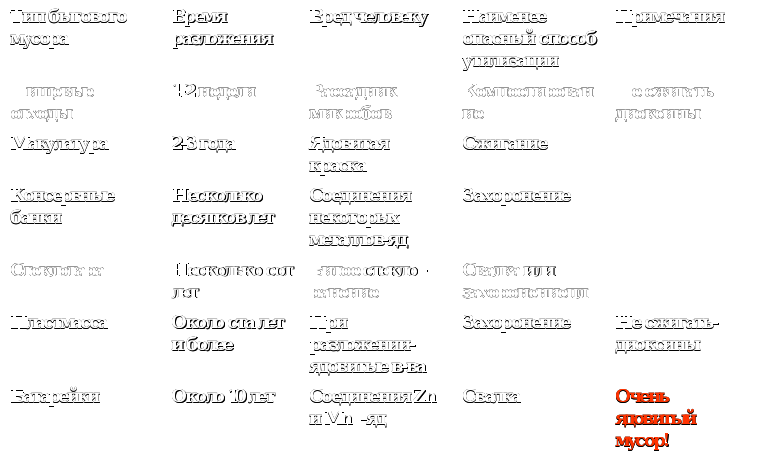 Тип бытового мусора
Время разложения
Вред человеку
Наименее опасный способ утилизации
Примечания
Пищевые отходы
1-2 недели
Рассадник микробов
Компостирование
Не сжигать-диоксины
Макулатура
2-3 года
Ядовитая краска
Сжигание
Консервные банки
Несколько десятков лет
Соединения некоторых металлов-яд
Захоронение
Стеклотара
Несколько сот лет
Битое стекло - ранение
Свалка или захоронение
Пластмасса
Около ста лет и более
При разложении-ядовитые в-ва
Захоронение
Не сжигать-диоксины
Батарейки
Около 10 лет
Соединения Zn и Mn -яд
Свалка
Очень ядовитый мусор!